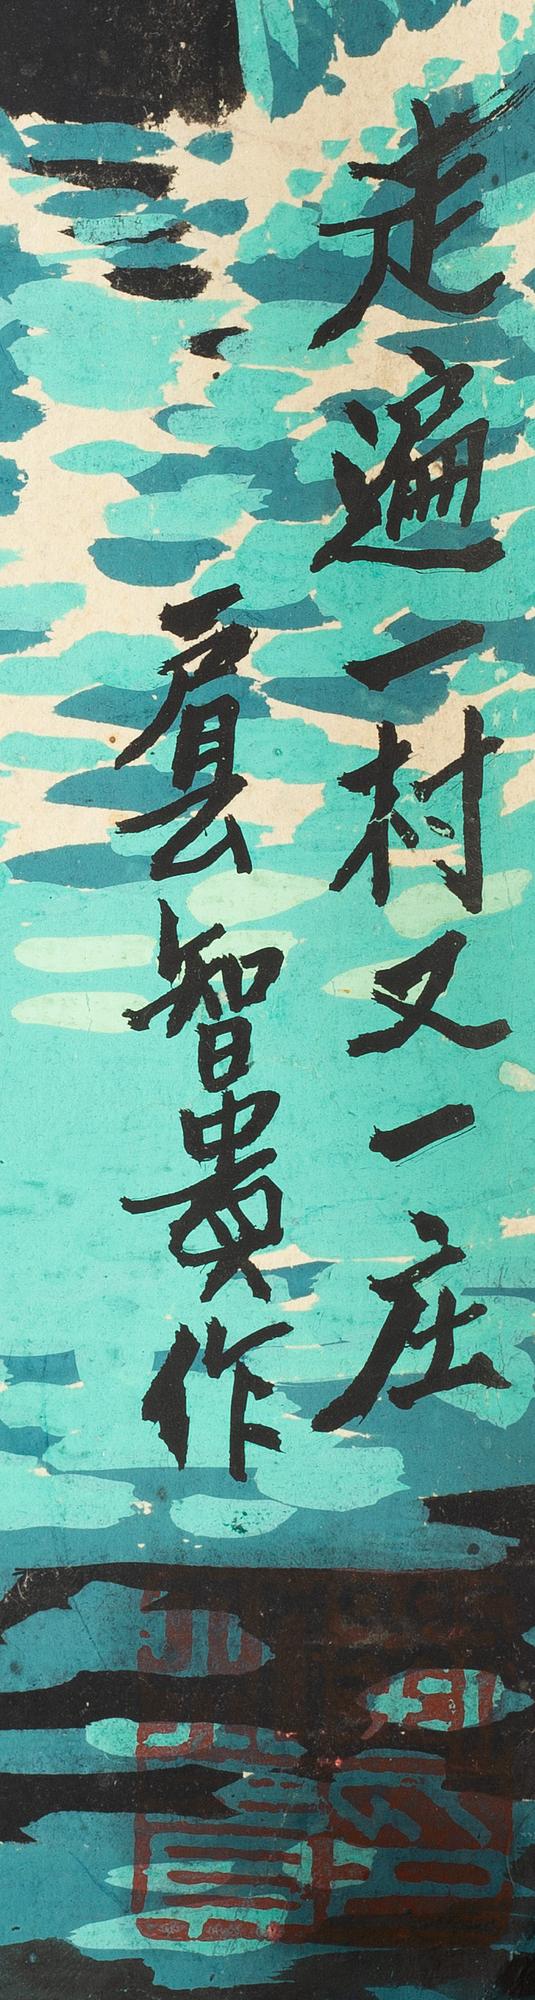 走遍一村又一庄
智貴作